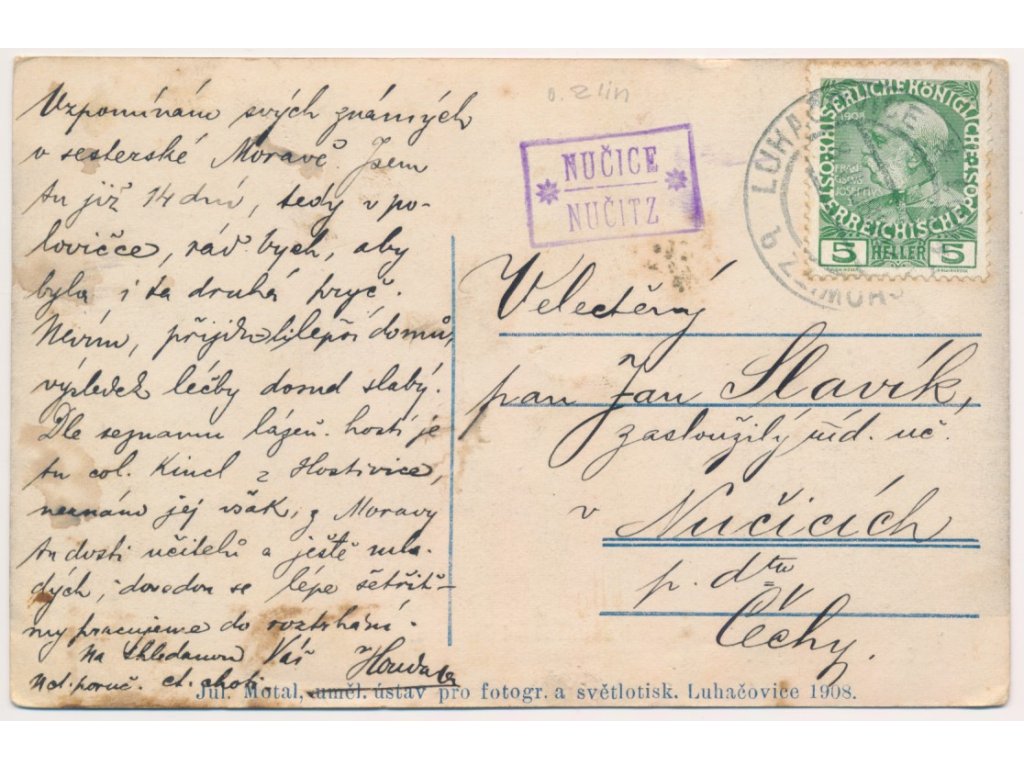 Vzpomínám svých známých
v sesterské Moravě. Jsem
tu již 14 dní, tedy v po-
lovičce, rád bych, aby
byla i ta druhá pryč.
Nevím, přijdu-li lepší domů,
výsledek léčby dosud slabý.
Dle seznamu lázeň. hostí je
tu col. Kincl z Hostivice,
neznám jej však, z Moravy
tu dosti učitelů a ještě mla-
dých, dovedou se lépe šetřit-
my pracujeme do roztrhání.
Na shledanou Váš
Uct. poruč. ct. choti
o. Zlín
NUČICE
NUČITZ
LUHA
KAISERLICHE KÖNIGLICHE
ÖSTERREICHISCHE POST
1908
5 HELLER 5
Velectěný
pan Jan Slavík,
zasloužilý říd. uč.
v Nučicích
p. dtto
Čechy.
Jul. Motal, uměl. ústav pro fotogr. a světlotisk. Luhačovice 1908.